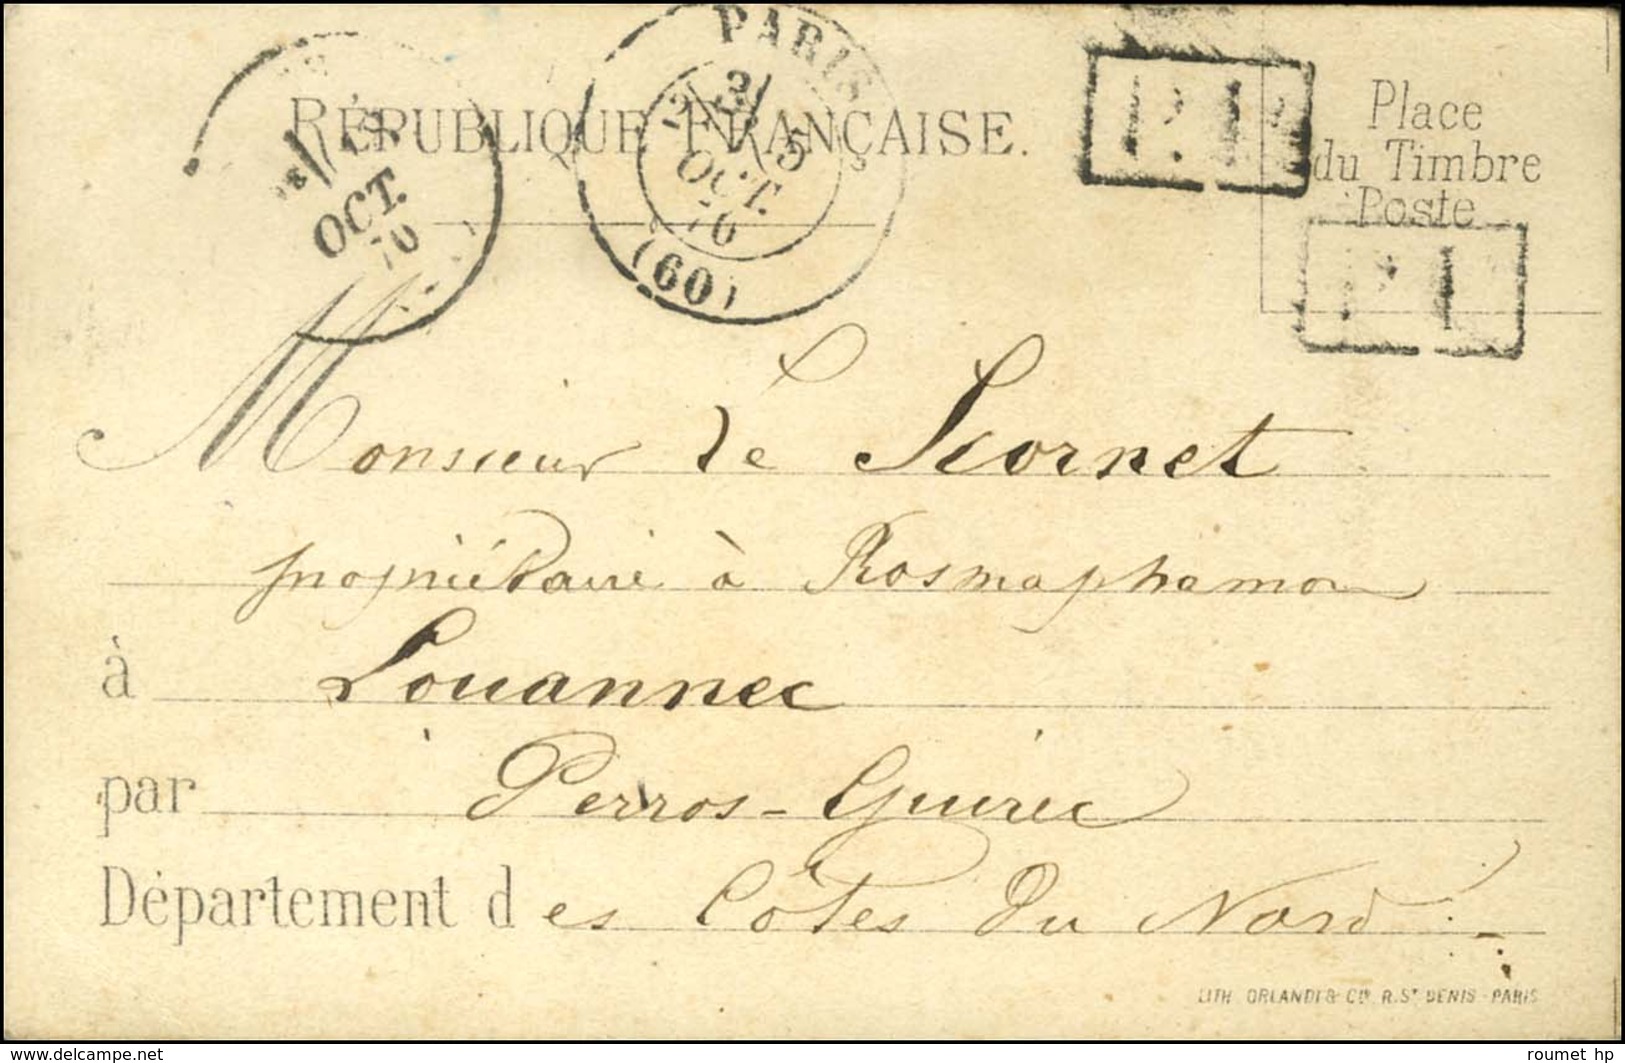 PARIS
2E/
5
OCT.
70
(60)
OCT.
70
RÉPUBLIQUE FRANÇAISE.
P.P.
Place
du Timbre
Poste
P.P.
Monsieur de Scornet
propriétaire à Rosmaphamon
à Louannec
par Perros-Guirec
Département des Côtes du Nord
LITH. ORLANDI & Cie R. St DENIS - PARIS
delcampe.net
roumet hp